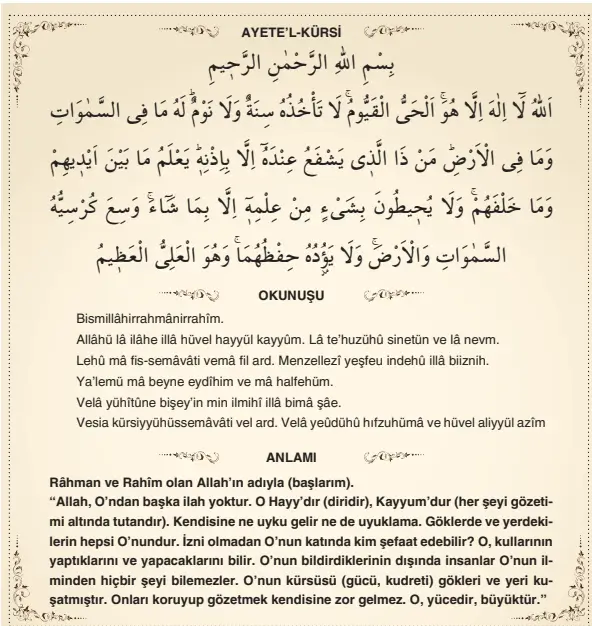 AYETE’L-KÜRSİ
بِسْمِ اللّٰهِ الرَّحْمٰنِ الرَّح۪يمِ
اَللّٰهُ لَٓا اِلٰهَ اِلَّا هُوَۚ اَلْحَيُّ الْقَيُّومُۚ لَا تَأْخُذُهُ سِنَةٌ وَلَا نَوْمٌۜ لَهُ مَا فِى السَّمٰوَاتِ
وَمَا فِى الْاَرْضِۜ مَنْ ذَا الَّذ۪ى يَشْفَعُ عِنْدَهُٓ اِلَّا بِاِذْنِه۪ۜ يَعْلَمُ مَا بَيْنَ اَيْد۪يهِمْ
وَمَا خَلْفَهُمْۚ وَلَا يُح۪يطُونَ بِشَىْءٍ مِنْ عِلْمِه۪ٓ اِلَّا بِمَا شَٓاءَۚ وَسِعَ كُرْسِيُّهُ
السَّمٰوَاتِ وَالْاَرْضَۚ وَلَا يَؤُ۫دُهُ حِفْظُهُمَاۚ وَهُوَ الْعَلِىُّ الْعَظ۪يمُ
OKUNUŞU
Bismillâhirrahmânirrahîm.
Allâhü lâ ilâhe illâ hüvel hayyül kayyûm. Lâ te’huzühû sinetün ve lâ nevm.
Lehû mâ fis-semâvâti vemâ fil ard. Menzellezî yeşfeu indehû illâ biiznih.
Ya’lemü mâ beyne eydîhim ve mâ halfehüm.
Velâ yühîtûne bişey’in min ilmihî illâ bimâ şâe.
Vesia kürsiyyühüssemâvâti vel ard. Velâ yeûdühû hıfzuhümâ ve hüvel aliyyül azîm
ANLAMI
Râhman ve Rahîm olan Allah’ın adıyla (başlarım).
“Allah, O’ndan başka ilah yoktur. O Hayy’dır (diridir), Kayyum’dur (her şeyi gözeti-
mi altında tutandır). Kendisine ne uyku gelir ne de uyuklama. Göklerde ve yerdeki-
lerin hepsi O’nundur. İzni olmadan O’nun katında kim şefaat edebilir? O, kullarının
yaptıklarını ve yapacaklarını bilir. O’nun bildirdiklerinin dışında insanlar O’nun il-
minden hiçbir şeyi bilemezler. O’nun kürsüsü (gücü, kudreti) gökleri ve yeri ku-
şatmıştır. Onları koruyup gözetmek kendisine zor gelmez. O, yücedir, büyüktür.”